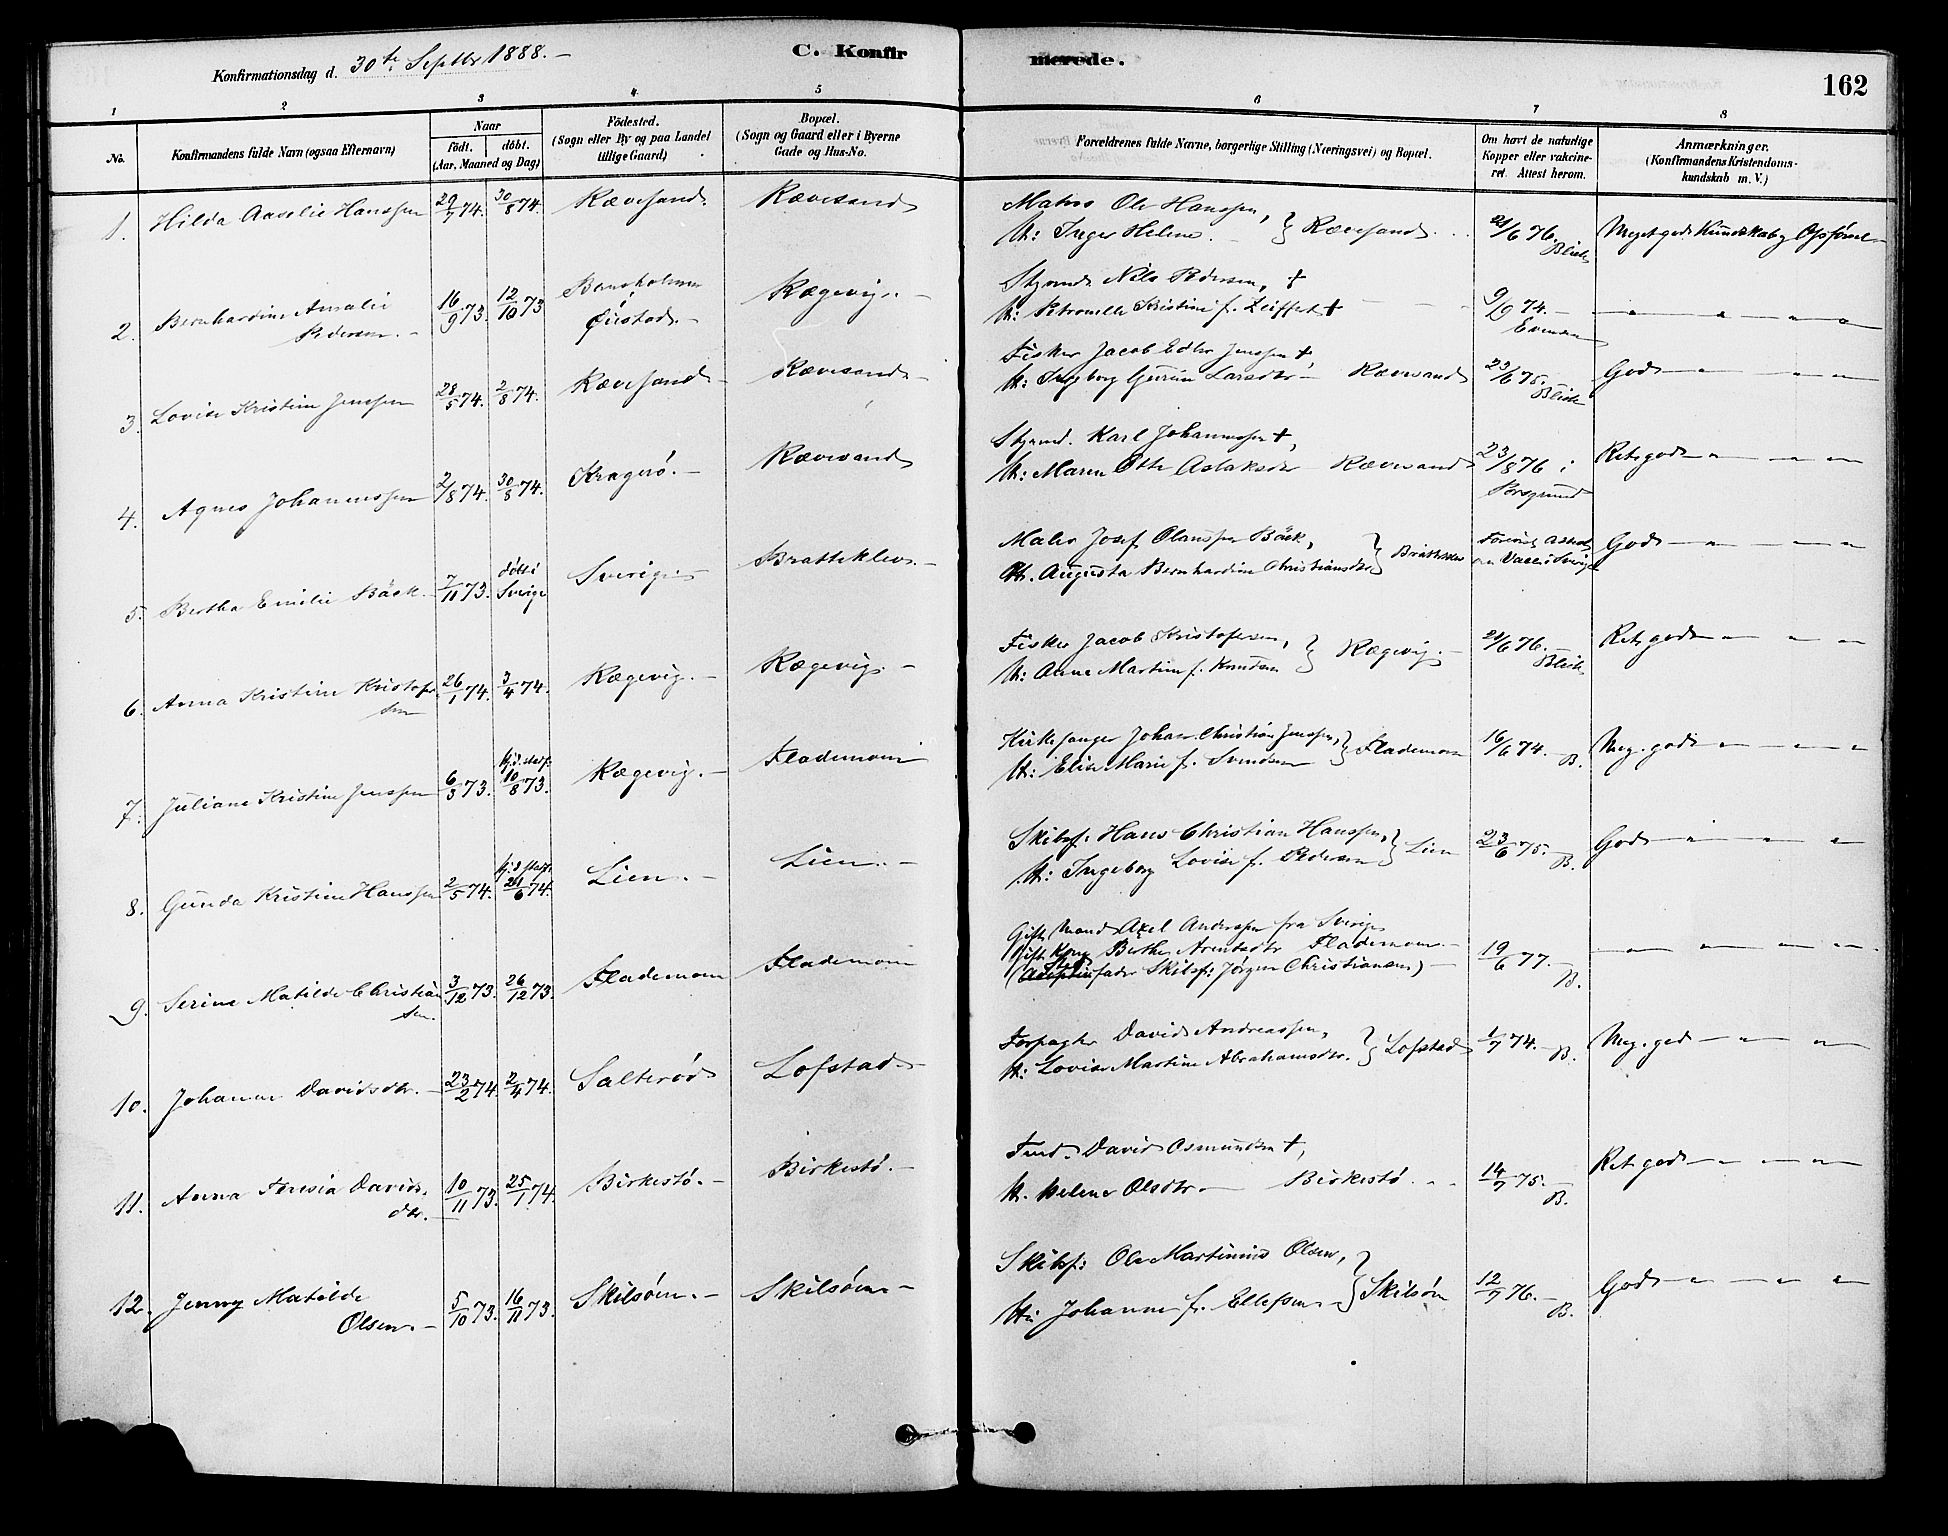 Konfirmationsdag d. 30te Septbr 1888. –
C. Konfir
merede.
162
1 2 3 4 5 6 7 8
No.
Konfirmandens fulde Navn (ogsaa Efternavn)
Naar
födt. döbt.
(Aar, Maaned og Dag)
Födested.
(Sogn eller By og paa Landet
tillige Gaard)
Bopæl.
(Sogn og Gaard eller i Byerne
Gade og Hus-No.
Forældrenes fulde Navne, borgerlige Stilling (Næringsvei) og Bopæl.
Om havt de naturlige
Kopper eller vakcine-
ret. Attest herom.
Anmærkninger.
(Konfirmandens Kristendoms-
kundskab m. V.)
1. Hilda Aaselie Hanssen 29/7 74. 30/8 74. Rævesand. Rævesand
Matros Ole Hanssen,
H: Inger Helene. – } Rævesand. 21/6 76. Blich
Meget god Kundskab og Opförsel
2. Bernhardine Amalie
Pedersen. – 16/9 73. 12/10 73
Öiestad. – Rægevig. –
Styrmd. Nils Pedersen, †
H: Petronelle Kristine f. Zeiffert † 9/9 74. –
– „ „ „ „
3. Lovise Kristine Jenssen 28/5 74. 2/8 74. Rævesand – Rævesand –
Fisker Jacob Edler Jenssen †,
H: Ingeborg Gurine Larsdtr – Rævesand 23/6 75. Blich
God – „ – „ – „
4. Agnes Johannessen 2/8 74. 30/8 74. Kragerö. – Rævesand
Styrmd. Karl Johannessen †,
H: Maren Otte Aslaksdtr – Rævesand 23/8 76 i
Porsgrund
Ret god – „ – „ – „
5. Bertha Emilie Bäck. 7/11 73. döbt i
Sverige Sverige – Bratteklev. –
Maler Josef Olaussen Bäck,
H. Augusta Bernhardine Christiansdtr } Bratteklev
God – „ – „ – „
6. Anna Kristine Kristofer
sen 26/1 74. 3/4 74. Rægevig. – Rægevig –
Fisker Jacob Kristofersen,
H: Anne Martine f. Knudsen } Rægevig. – 21/6 76. Blich
Ret god – „ – „ – „
7. Juliane Kristine Jenssen 6/3 73. hj.d. stadf. 10/8 73. Rægevig. – Flademoen
Kirkesanger Johan Christian Jenssen,
H: Elise Marie f. Svendsen } Flademoen 16/6 74. – B.
Meg. god – „ – „ – „
8. Gunda Kristine Hanssen 2/5 74. hj.d. stadf. 21/6 74. Lien. – Lien. –
Skibsf. Hans Christian Hanssen,
H: Ingeborg Lovise f. Pedersen } Lien 23/6 75. – B.
God – „ – „ – „
9. Serine Matilde Christian
sen. 3/12 73. 26/12 73. Flademoen Flademoen
Gift Mand Axel Anderssen fra Sverige
Gift Kone Berthe Arentsdtr Flademoen. –
(Adoptivfader Skibsf: Jörgen Christiansen) – 19/6 77. – B.
– „ – „ – „ – „
10. Johanne Davidsdtr. – 23/2 74. 2/4 74. Salteröd Lofstad –
Forpagter David Andreassen,
H: Lovise Martine Abrahamsdtr. } Lofstad 1/7 74. – B.
Meg. god – „ – „ – „
11. Anna Teresia Davids-
dtr. – 10/11 73. 25/1 74. Birkestö. – Birkestö. –
David Osmundsen †,
H. Helene Olsdtr – Birkestö. 14/7 75. – B.
Ret god – „ – „ – „
12. Jenny Matilde
Olsen. – 5/10 73. 16/11 73. Skilsöen. – Skilsöen –
Skibsf: Ole Martinius Olsen,
H: Johanne f. Ellefsen. – } Skilsöen 12/7 76. – B.
God – „ – „ – „